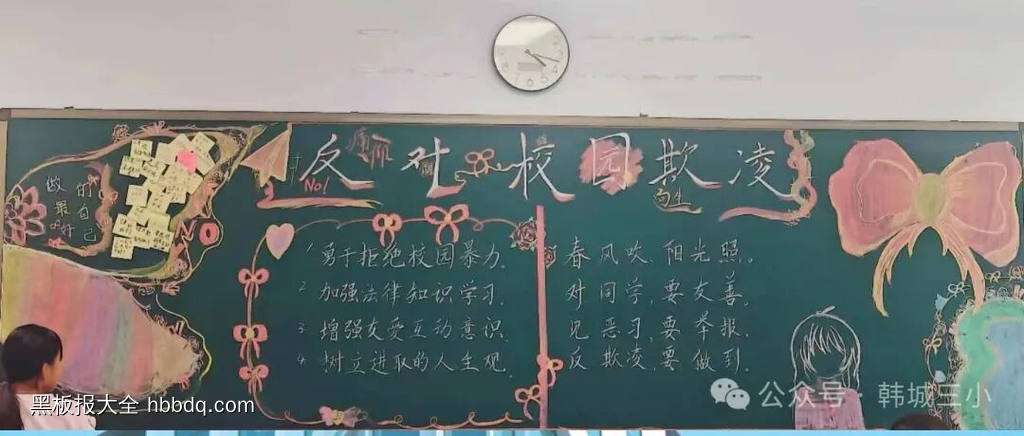 反对校园欺凌
No!
做最好
的自己
NO
1 勇于拒绝校园暴力.
2 加强法律知识学习.
3 增强友爱互动意识.
4 树立进取的人生观.
春风吹.阳光照。
对同学,要友善。
见恶习,要举报.
反欺凌,要做到.
黑板报大全 hbbdq.com
公众号·韩城三小